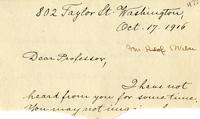 802 Taylor St. Washington,
Oct. 17, 1916
Dear Professor,
I have not
heard from you for some time.
You may not